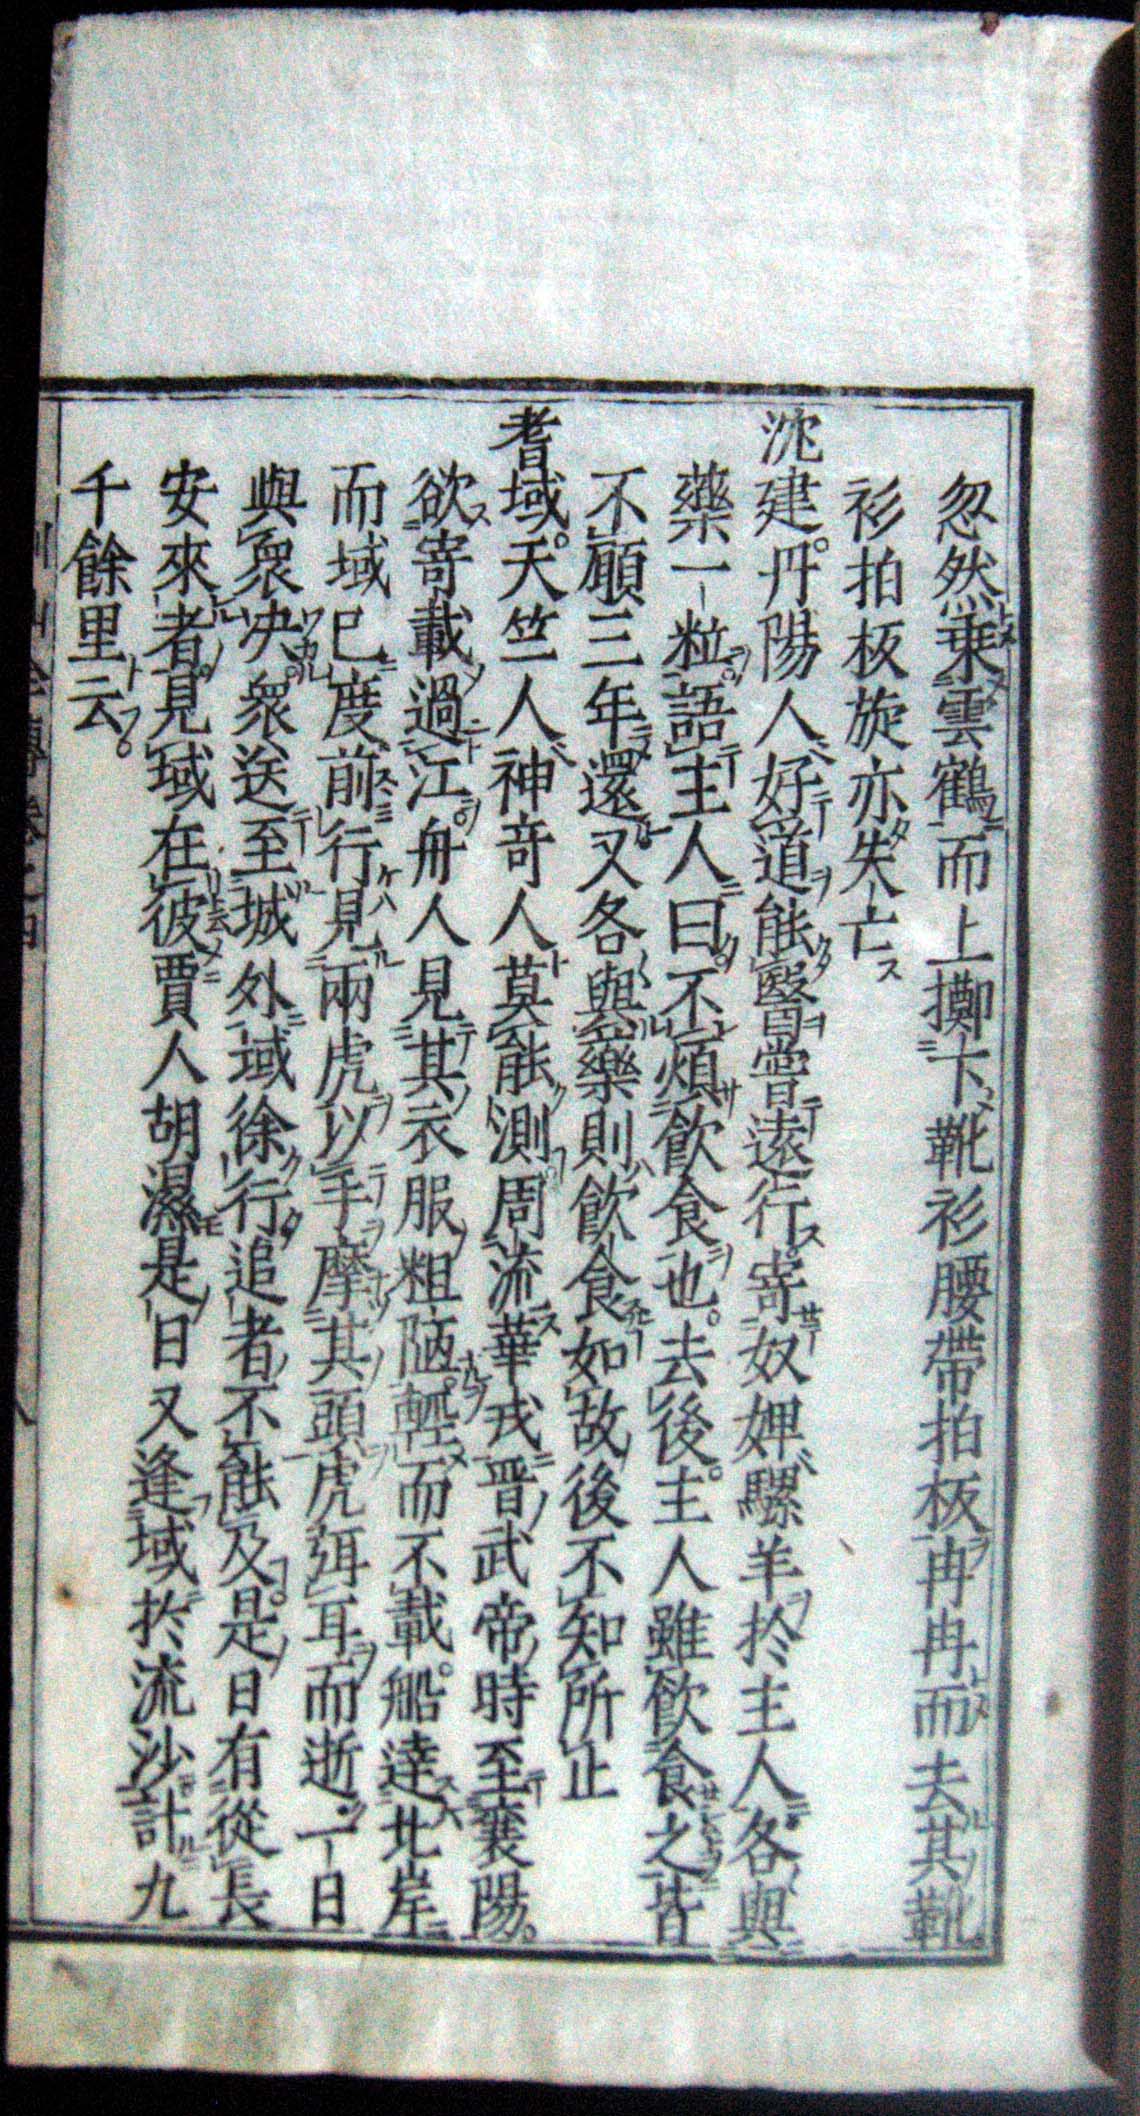 忽然乗雲鶴而上擲下靴衫腰帶拍板冉冉而去其靴
衫拍板旋亦失亡
沈建。丹陽人好道能醫嘗遠行寄奴婢驟羊於主人各與
藥一粒。語主人曰不煩飲食也。去後。主人雖飲食之皆
不顧三年還。又各與藥則飲食如故後不知所止
耆域。天竺人神奇人莫能測周流華戎晋武帝時至襄陽。
欲寄載過江。舟人見其衣服粗陋。輕而不載。船達北岸
而域已度前行見兩虎以手摩其頭虎弭耳而逝一日
與衆决。衆送至城外域徐行追者不能及。是日有從長
安來者。見域在彼賈人胡濕是日又逢域於流沙計九
千餘里云。